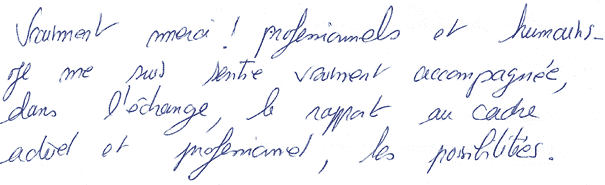 Vraiment merci ! professionnels et humains.
Je me suis sentie vraiment accompagnée,
dans l'échange, le rapport au cadre
actuel et professionnel, les possibilités.